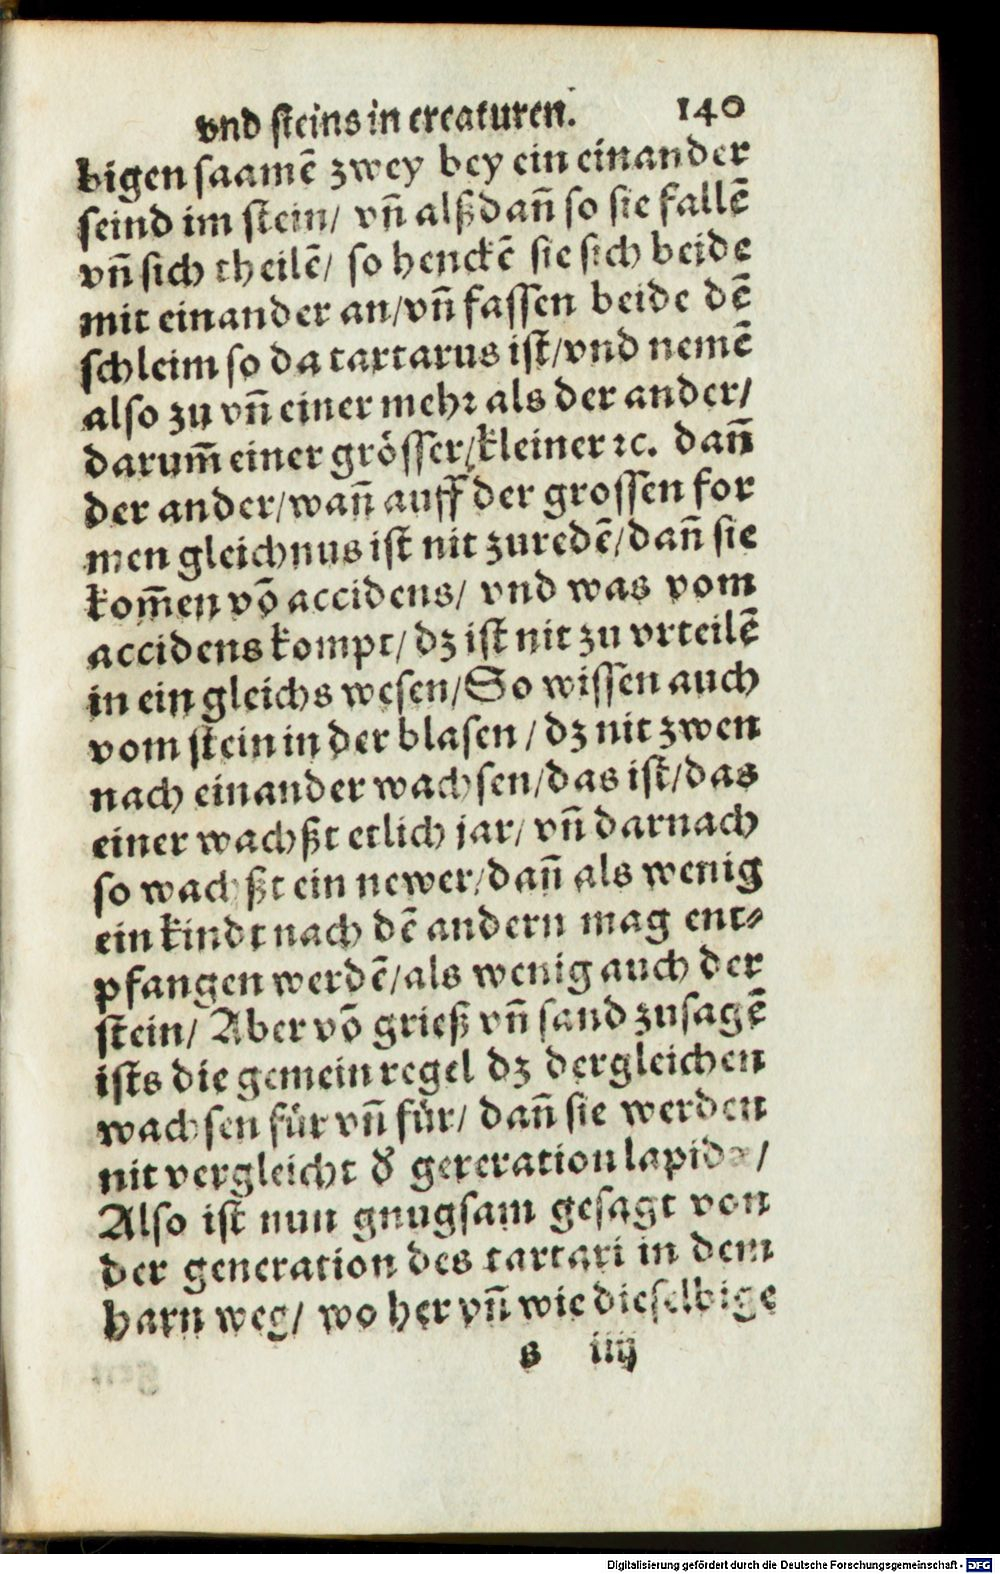 vnd steins in creaturen. 140
bigen saamē zwey bey ein einander
seind im stein/ vñ alßdañ so sie fallē
vñ sich theilē/ so henckē sie sich beide
mit einander an/vñ fassen beide dē
schleim so da tartarus ist/vnd nemē
also zu vñ einer mehr als der ander/
darum̄ einer grösser/kleiner ꝛc. dañ
der ander/wañ auff der grossen for
men gleichnus ist nit zuredē/dañ sie
kom̄en vō accidens/ vnd was vom
accidens kompt/dz ist nit zu vrteilē
in ein gleichs wesen/So wissen auch
vom stein in der blasen/dz nit zwen
nach einander wachsen/das ist/das
einer wachßt etlich jar/ vñ darnach
so wachßt ein newer/dañ als wenig
ein kindt nach dē andern mag ent-
pfangen werdē/als wenig auch der
stein/ Aber vō grieß vñ sand zusagē
ists die gemein regel dz dergleichen
wachsen für vñ für/ dañ sie werden
nit vergleicht d' gereration lapidæ/
Also ist nun gnugsam gesagt von
der generation des tartari in dem
harn weg/ wo her vñ wie dieselbige
s iiij
Digitalisierung gefördert durch die Deutsche Forschungsgemeinschaft - DFG